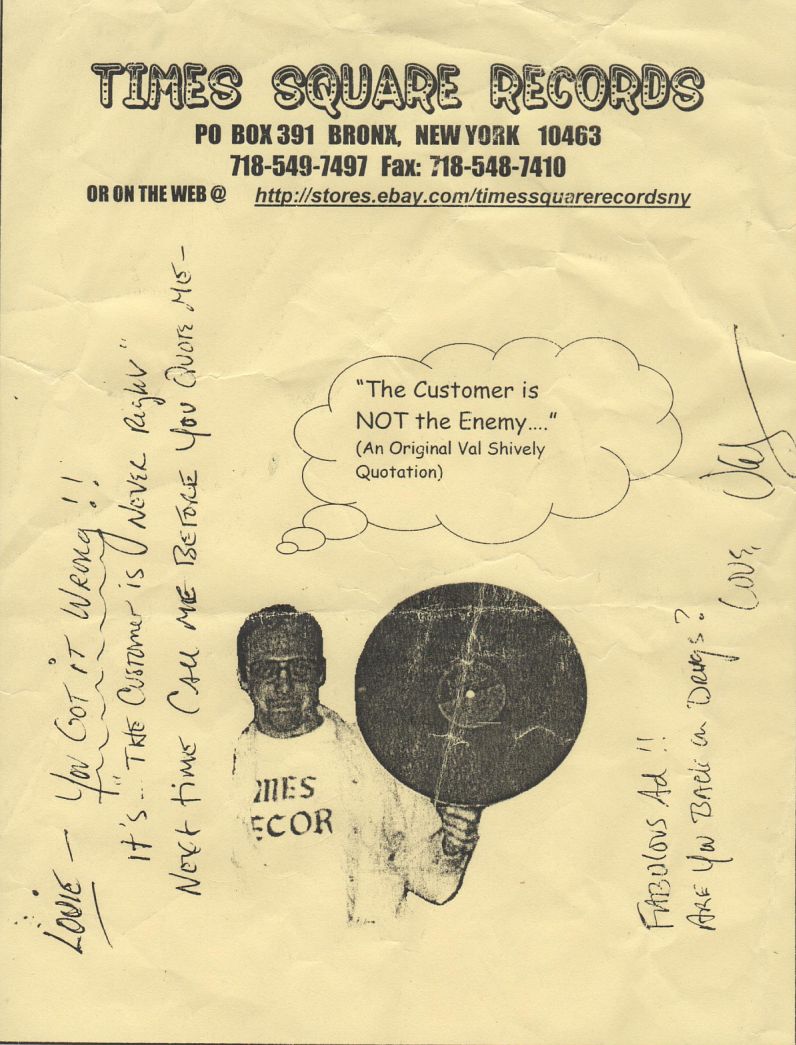 TIMES SQUARE RECORDS
PO BOX 391 BRONX, NEW YORK 10463
718-549-7497 Fax: 718-548-7410
OR ON THE WEB @ http://stores.ebay.com/timessquarerecordsny
"The Customer is
NOT the Enemy...."
(An Original Val Shively
Quotation)
IMES
ECOR
LOUIE — YOU GOT IT WRONG!!
IT'S... "THE CUSTOMER IS NEVER Right"
NEXT TIME CALL ME BEFORE YOU QUOTE ME—
FABULOUS AD!!
ARE YOU BACK on DRUGS?
LOVE, Val